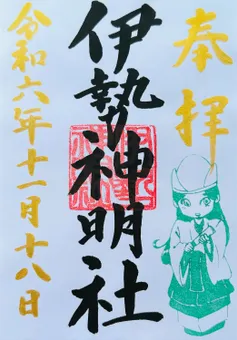 奉拝
伊勢神明社
令和六年十一月十八日